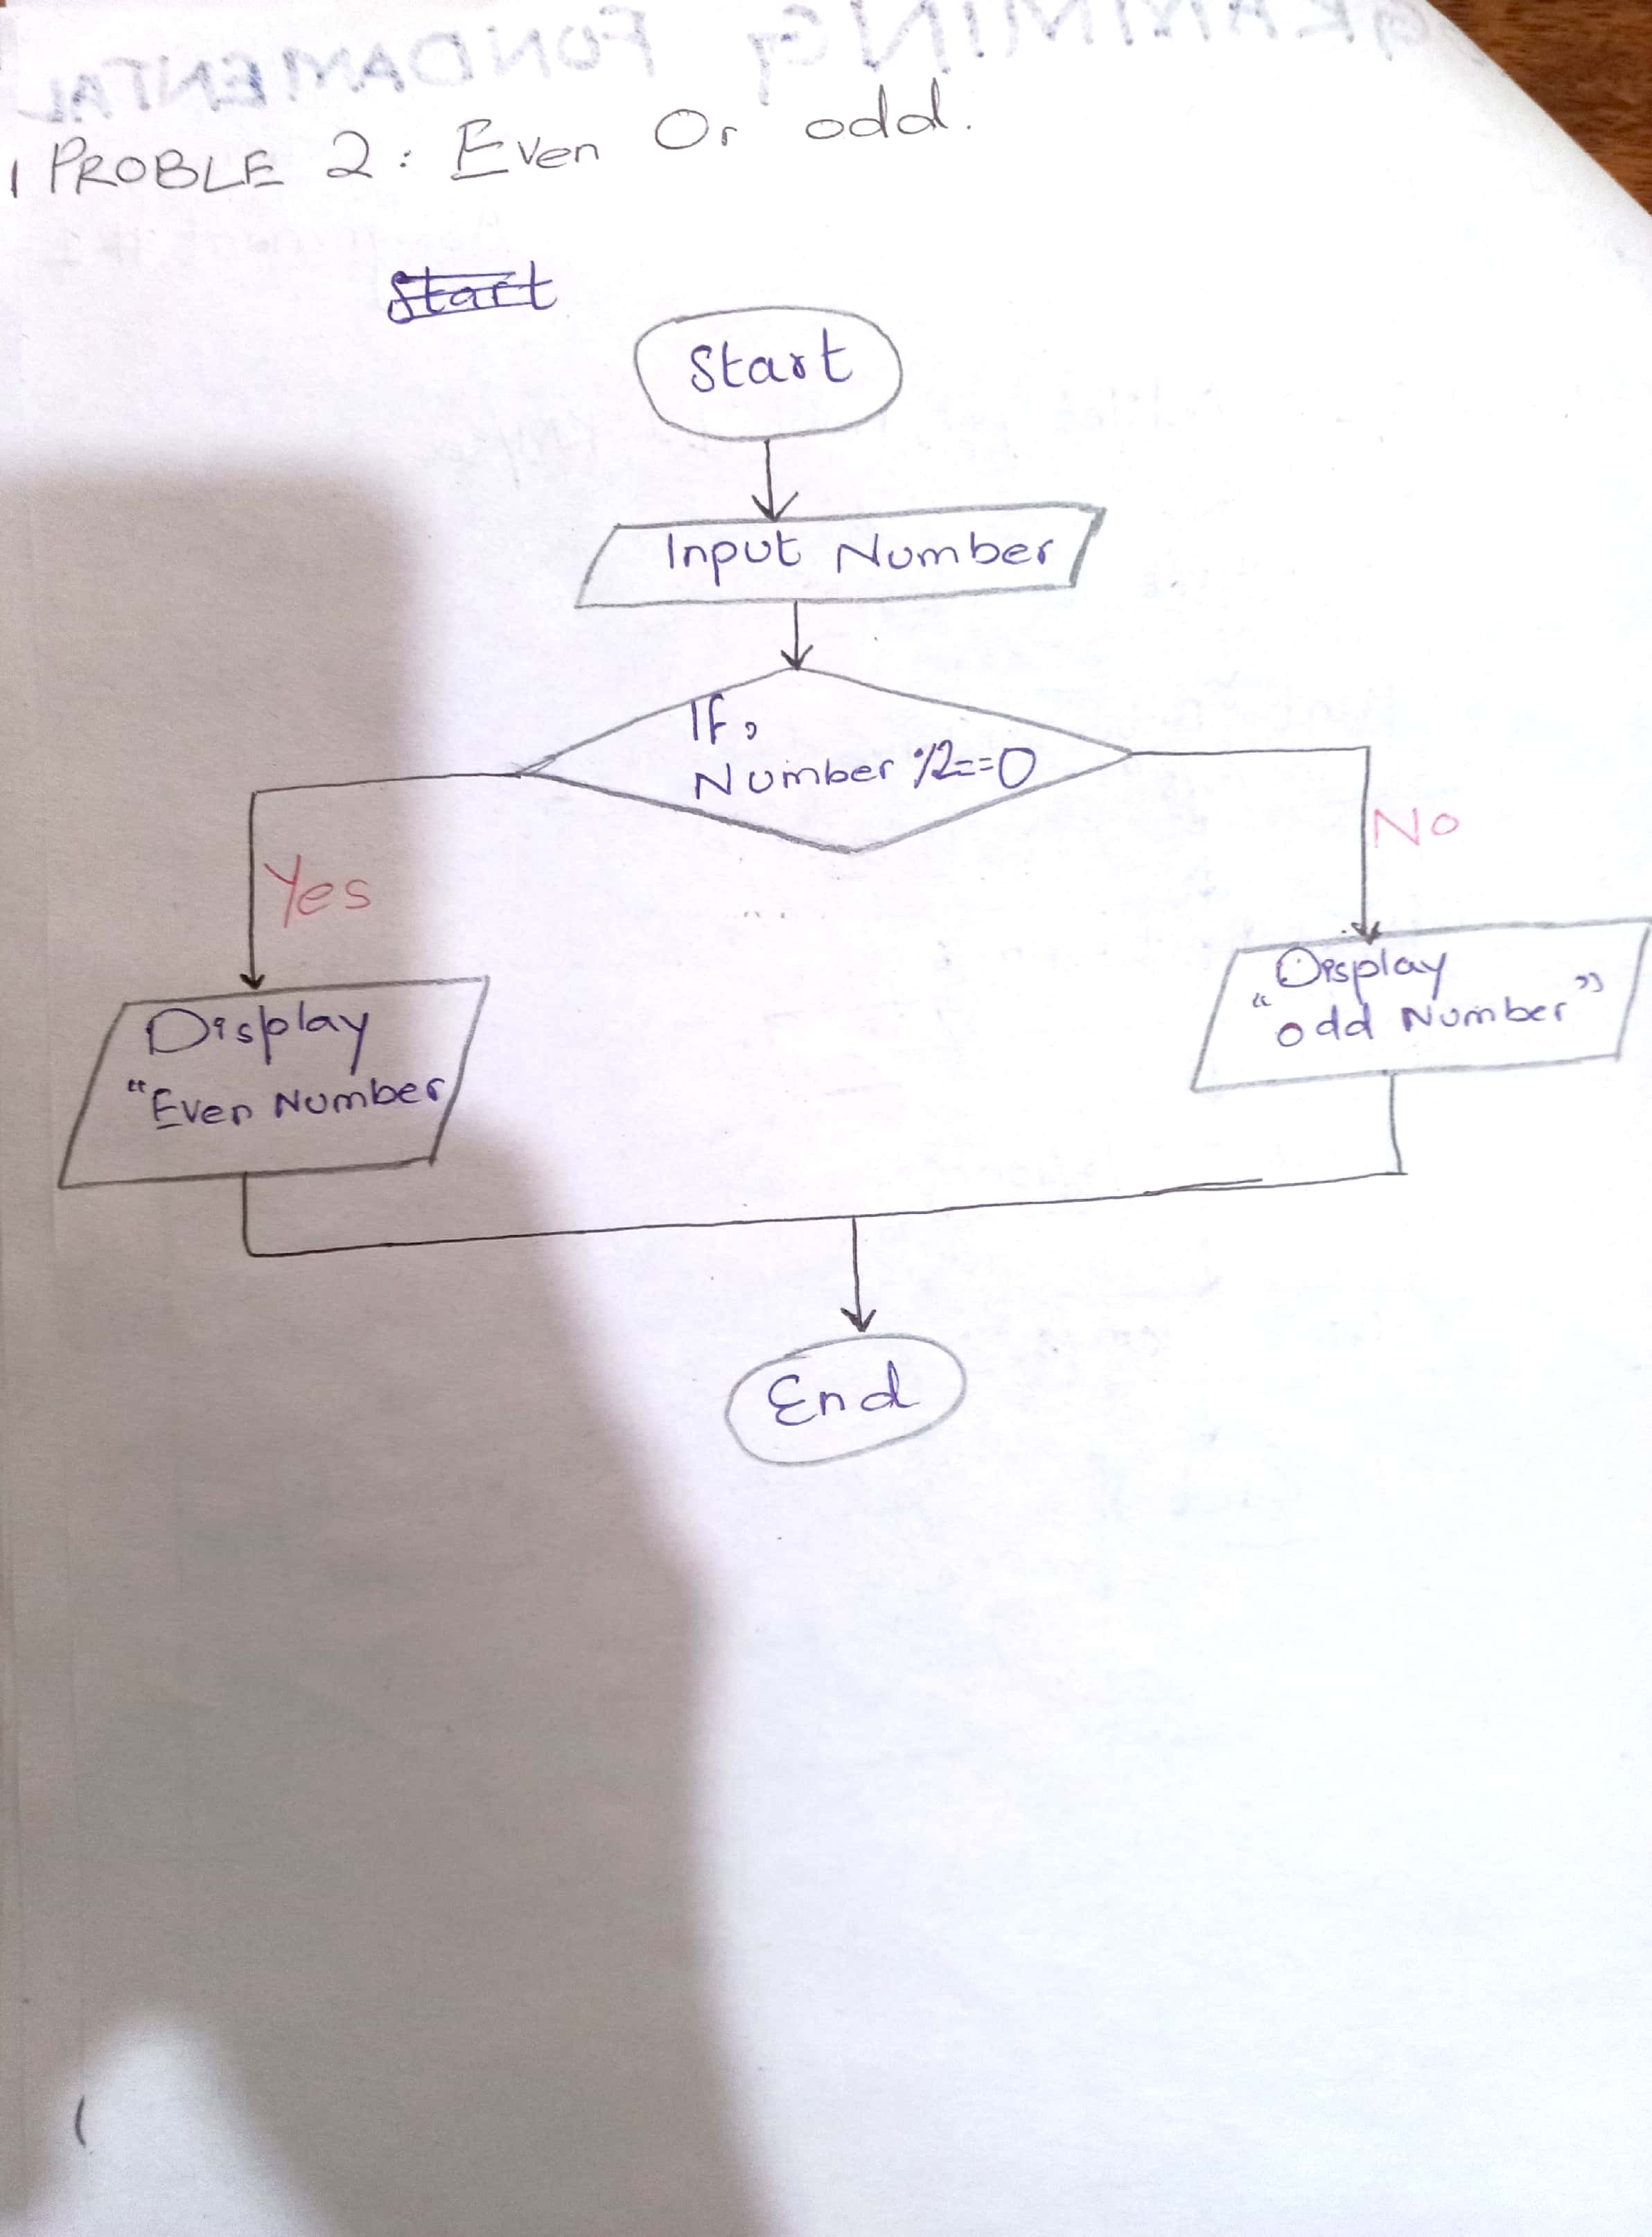 PROBLE 2: Even Or odd.
Start
Start
Input Number
If,
Number %2==0
Yes
No
Display
"Even Number
Display
"odd Number"
End